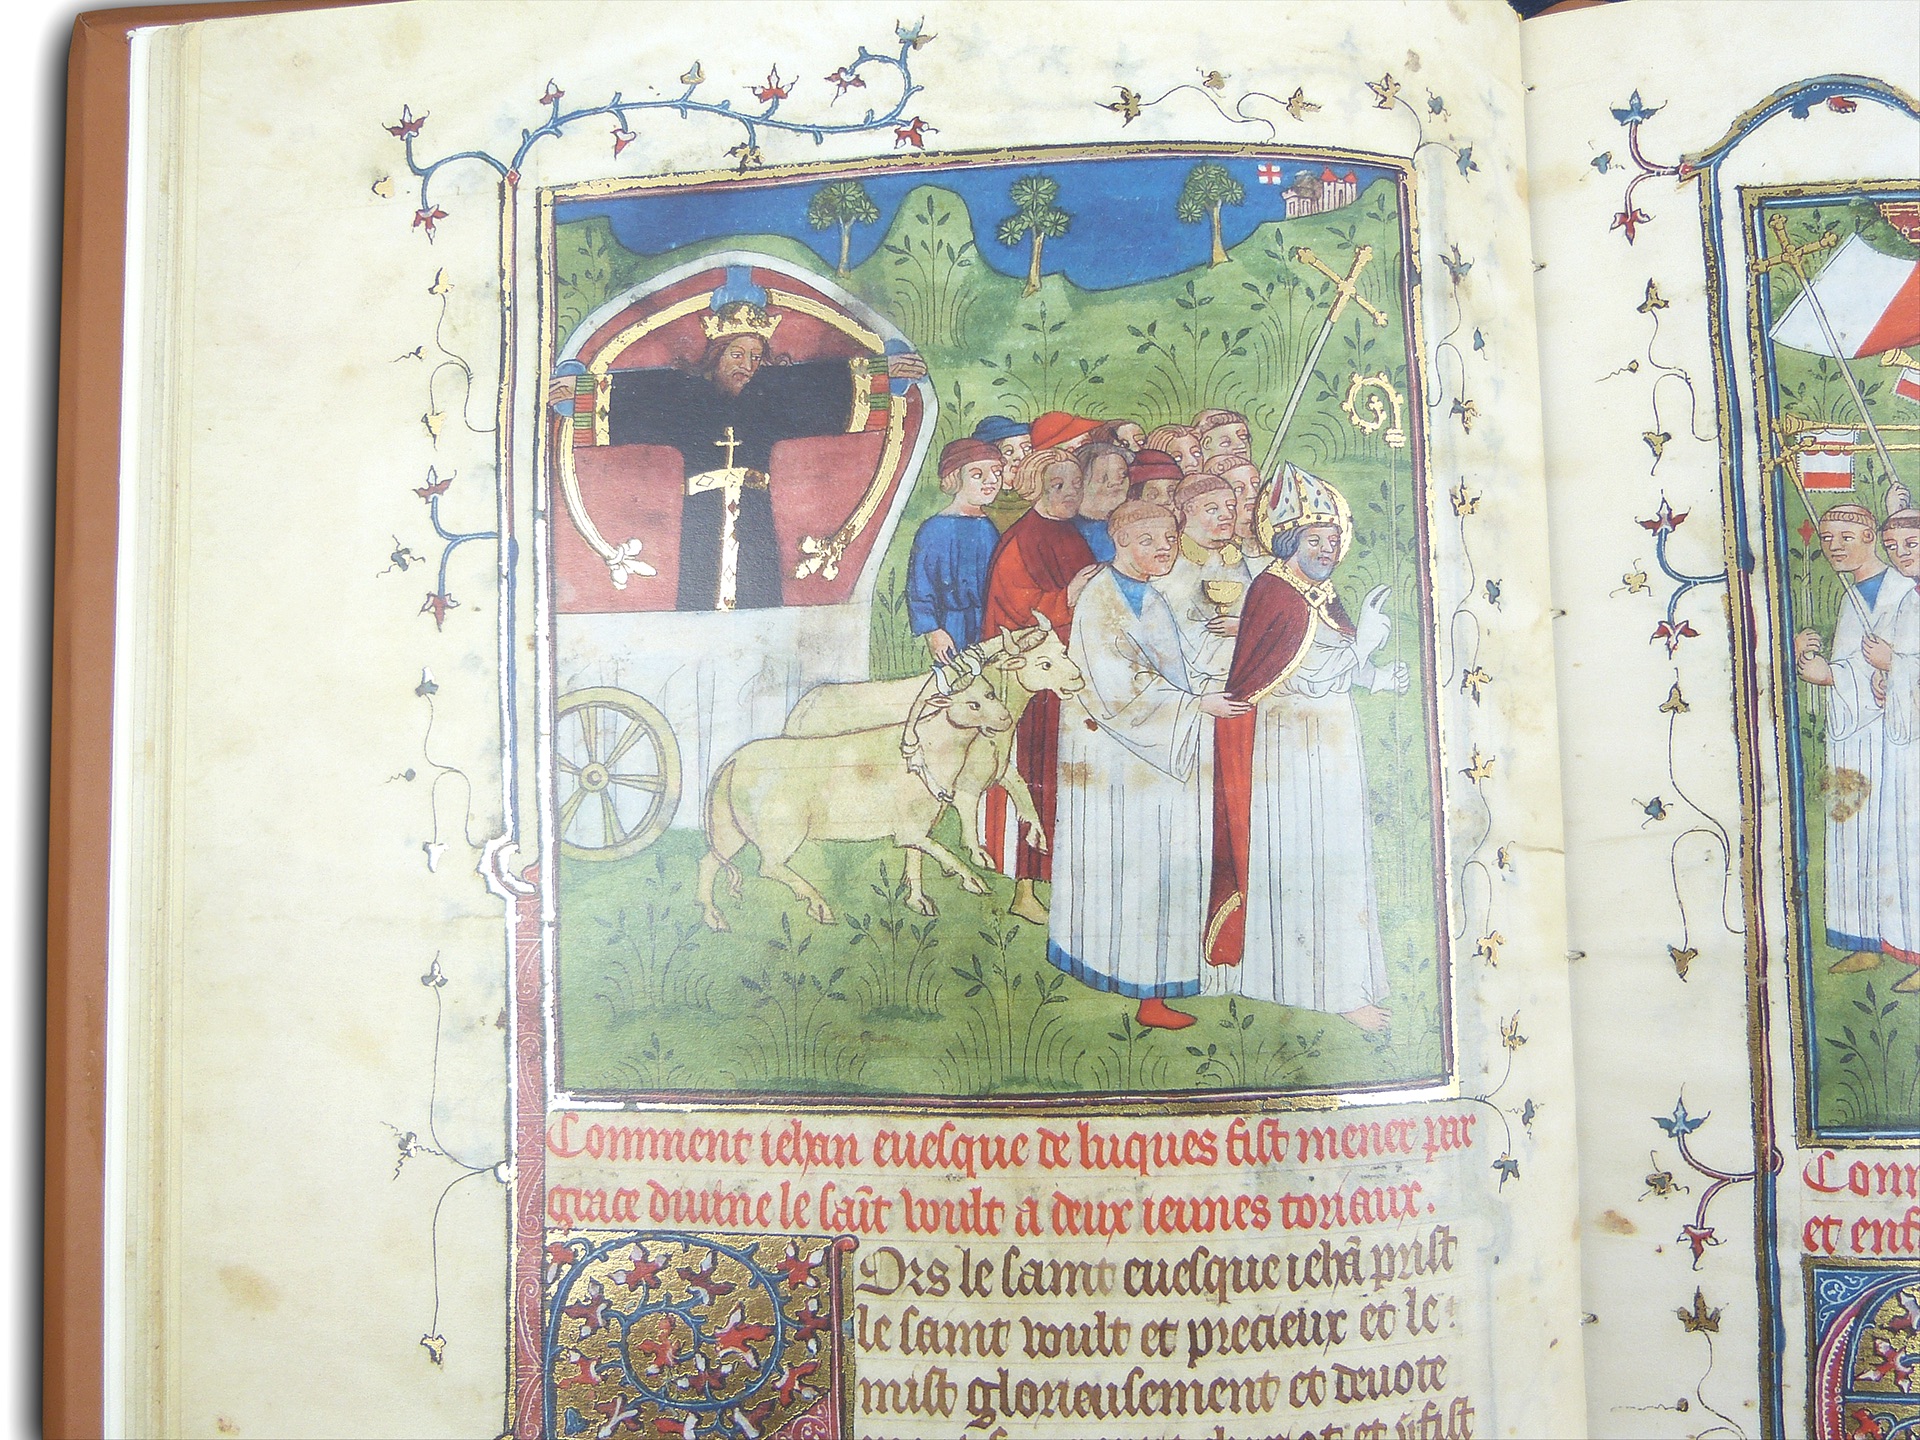 Comment iehan euesque de luques fist mener par
grace diuine le saīt voult a deux ieunes toriaux.
Ors le saint euesque iehā prist
le saint voult et precieux et le
mist glorieusement et deuote
Com
et enf